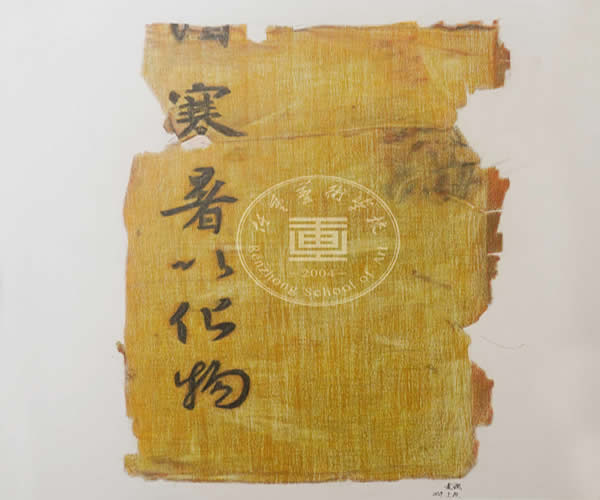 寒暑以化物
2004
Renzhong School of Art